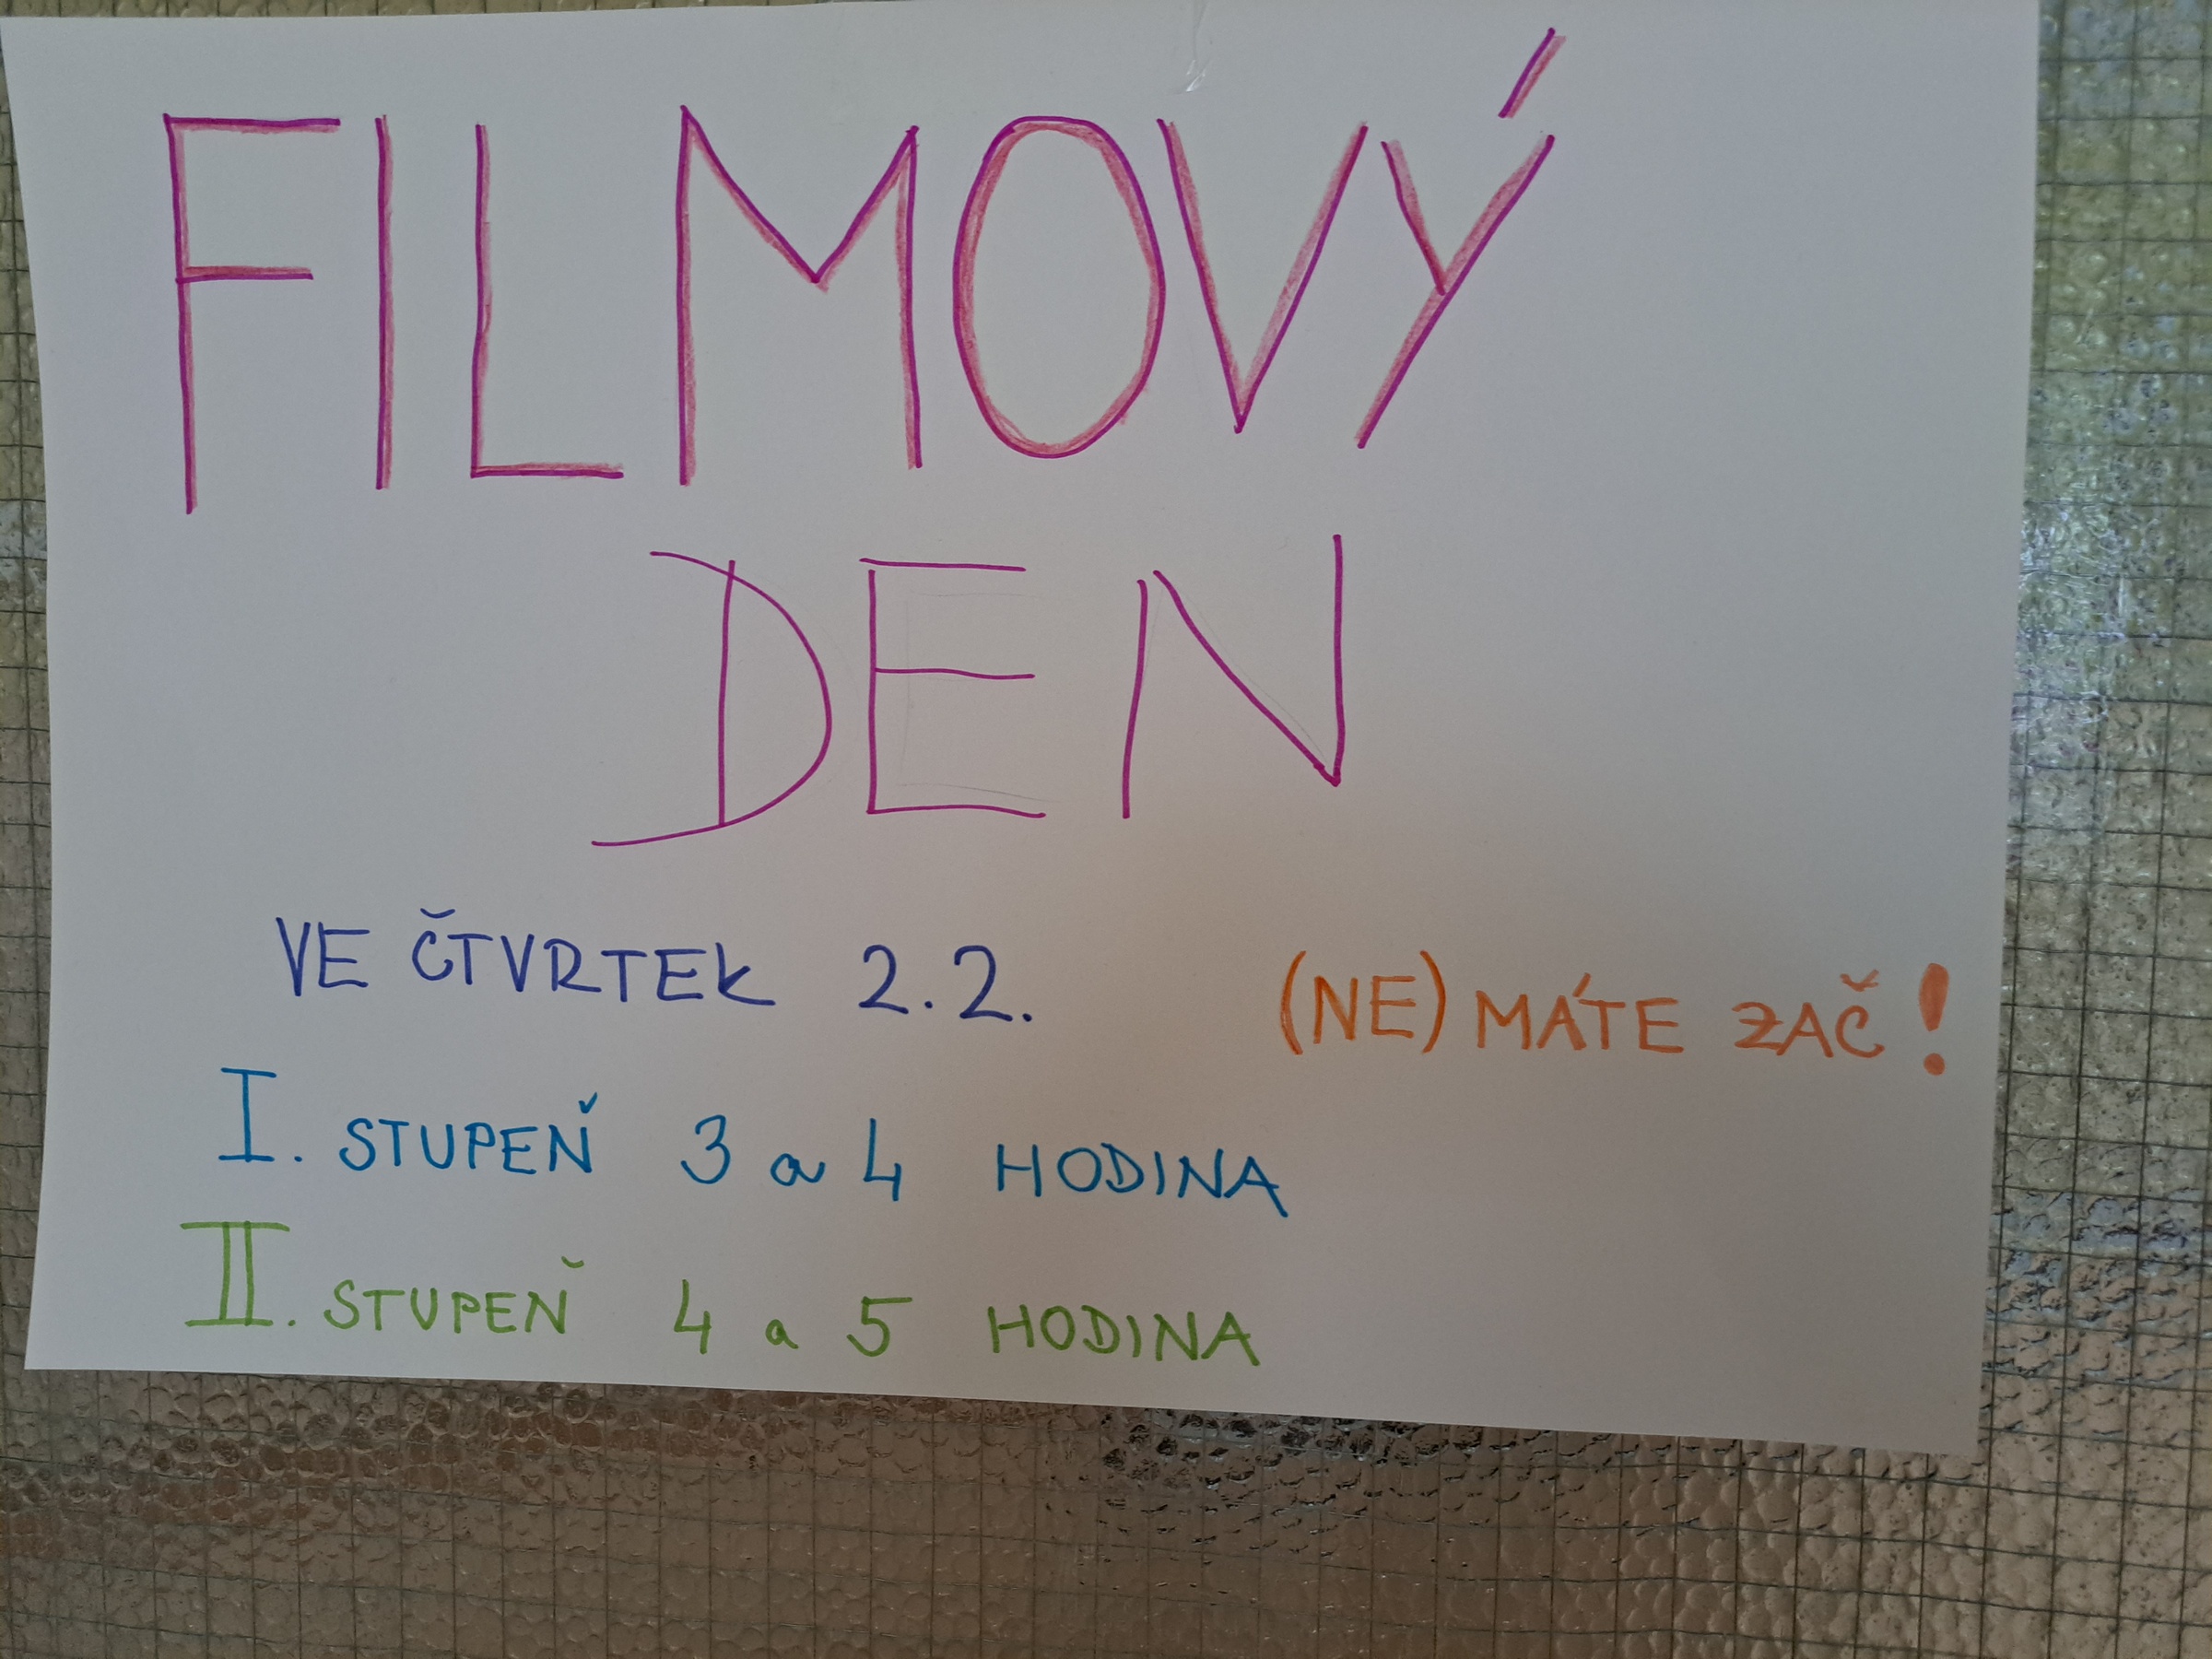 FILMOVÝ
DEN
VE ČTVRTEK 2.2.
(NE) MÁTE ZAČ!
I. STUPEŇ 3 a 4 HODINA
II. STUPEŇ 4 a 5 HODINA